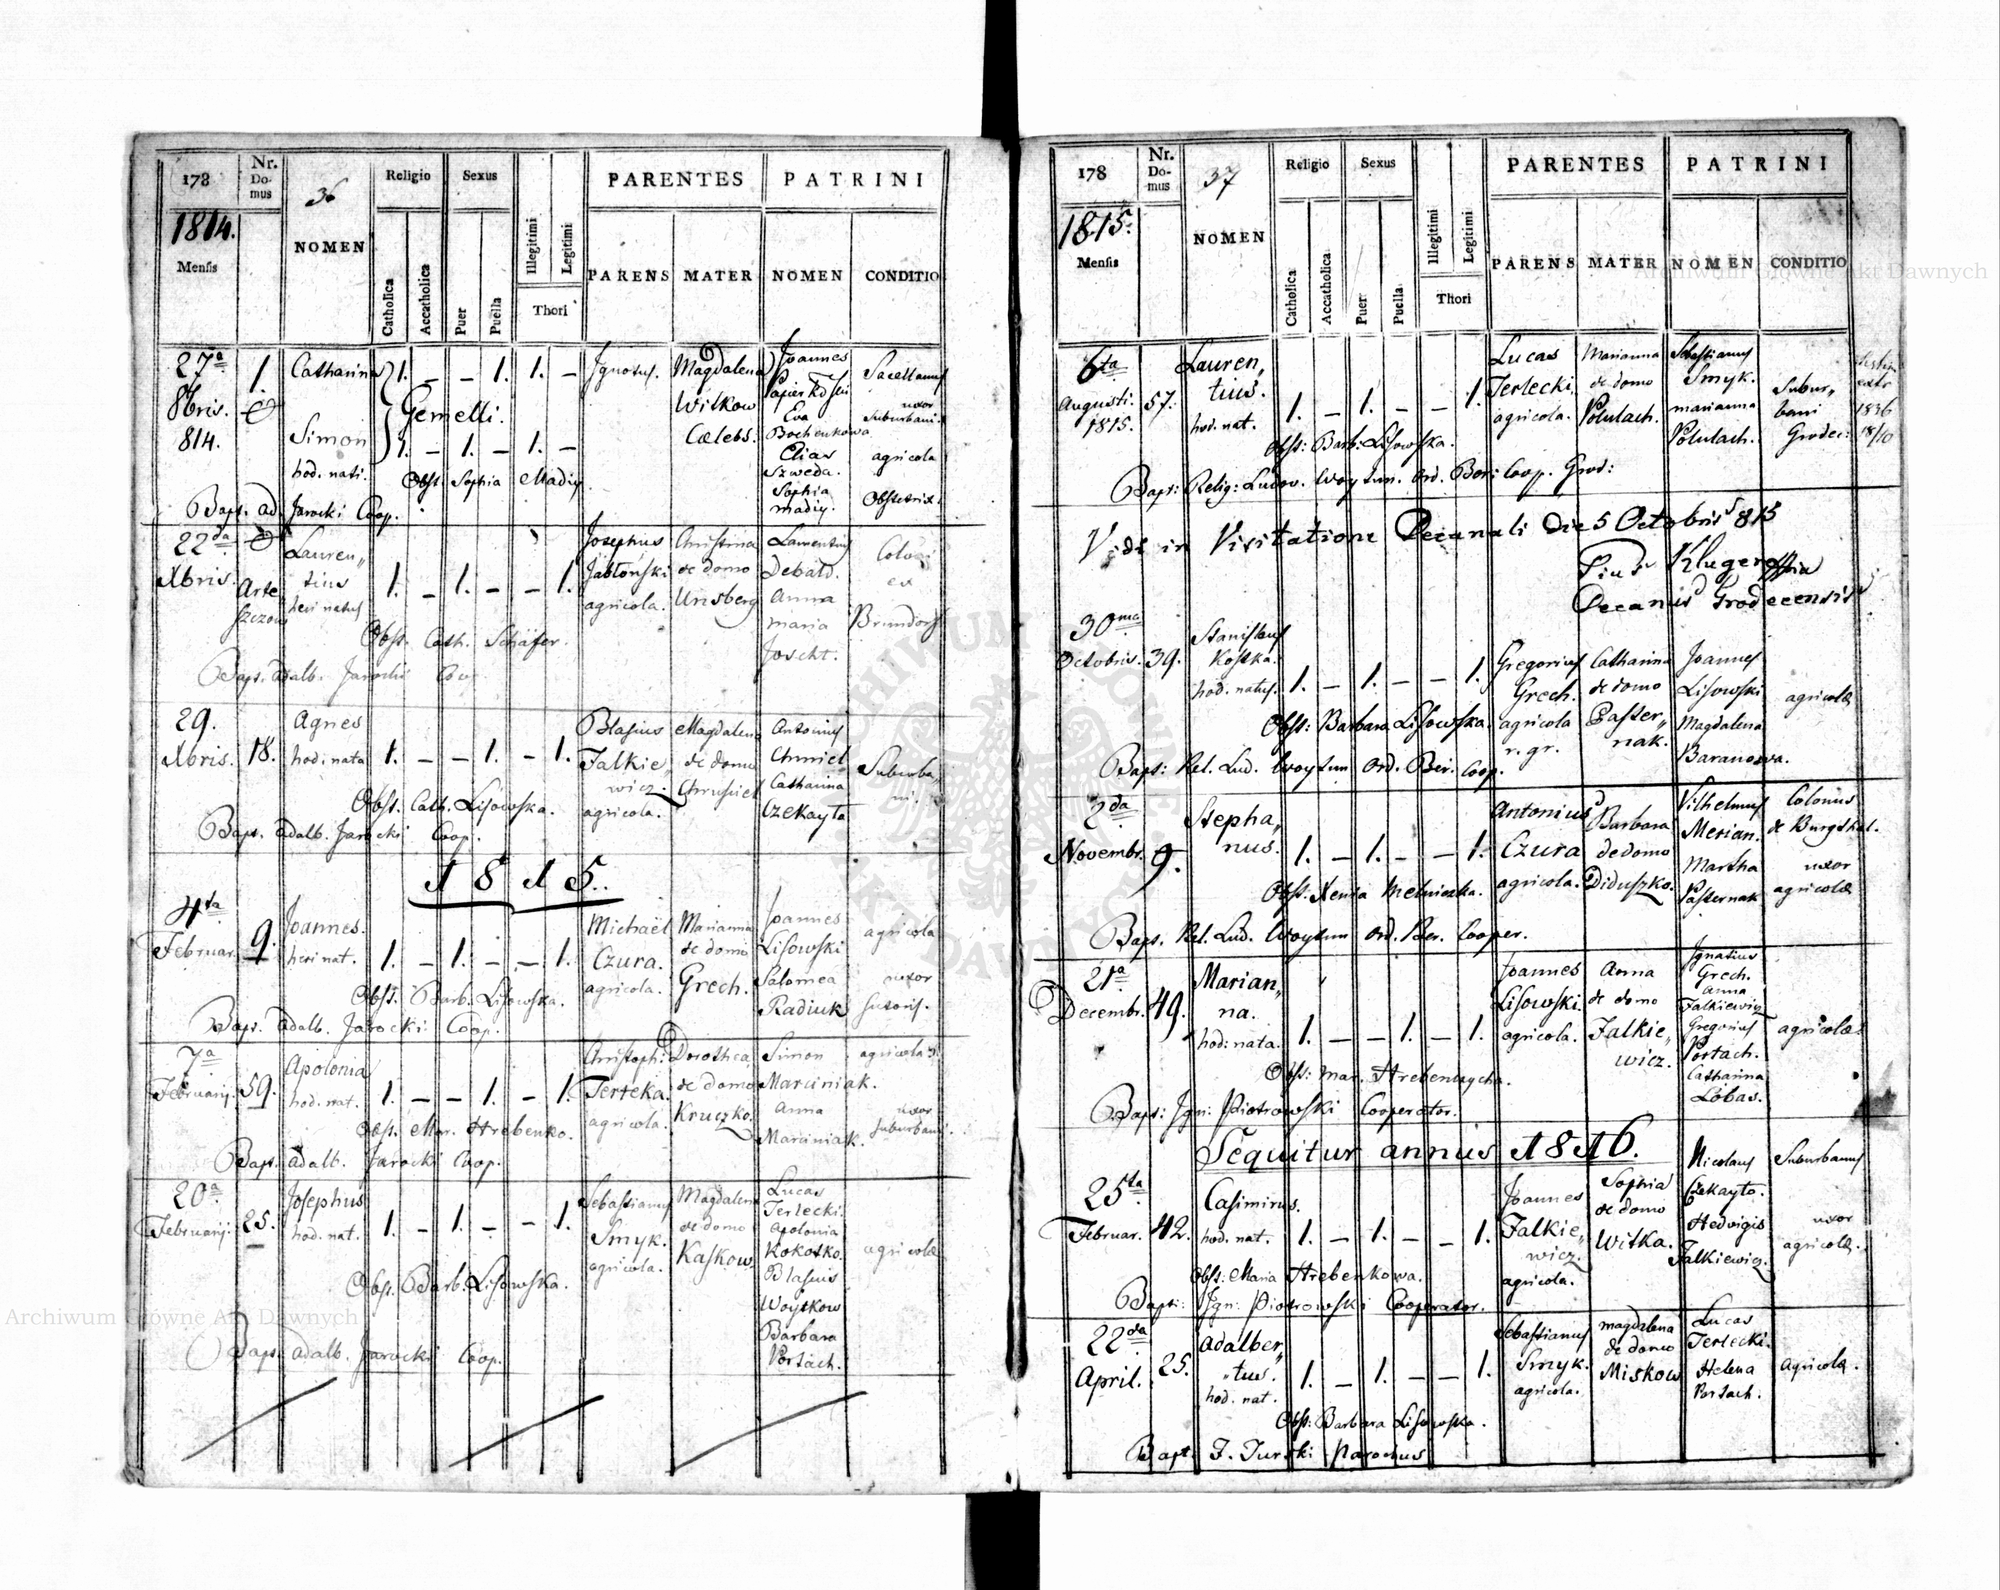 178
Nr.
Do-
mus
36
Religio
Sexus
PARENTES
PATRINI
1814.
Mensis
NOMEN
Catholica
Accatholica
Puer
Puella
Illegitimi
Legitimi
Thori
PARENS
MATER
NOMEN
CONDITIO
27ª
8bris.
814.
1.
Catharina
Gemelli.
Simon
hod. nati.
1. – – 1. 1. –
1. – 1. – 1. –
Obst. Sophia Madiy
Bapt. Ad. Jarocki Coop.
Ignotus.
Magdalena
Witkow
Cælebs.
Joannes
Papierkoski
Eva
Bochenkowa
Elias
Szweda.
Sophia
Madiy.
Sacellanus
uxor
suburbani.
agricola
Obstetrix.
22da
Xbris.
Arte
szczow
Lauren„
tius
heri natus
1. – 1. – – 1.
Obst. Cath. Schäfer.
Bapt. Adalb. Jarocki Coo
Josephus
Jabłoński
agricola.
Christina
de domo
Unsberg
Laurentius
Debald.
Anna
Maria
Joscht.
Coloni
ex
Brundorf
29.
Xbris.
18.
Agnes
hod. nata
1. – – 1. – 1.
Obst. Cath. Lisowska.
Bapt. Adalb. Jarocki Coop.
Blasius
Falkie„
wicz.
agricola.
Magdalena
de domo
Chrusciel
Antonius
Chmiel
Catharina
Czekayła
Suburba„
ni.
1815.
4ta
Februar.
9.
Joannes.
heri nat.
1. – 1. – – 1.
Obst. Barb. Lisowska.
Bapt. Adalb. Jarocki Coop.
Michaël
Czura.
agricola.
Marianna
de domo
Grech.
Joannes
Lisowski
Salomea
Radiuk
agricola
uxor
sutoris.
7ª
Februarij.
59.
Apolonia
hod. nat.
1. – – 1. – 1.
Obst. Mar. Hrebenko.
Bapt. Adalb. Jarocki Coop.
Christoph:
Terteka.
agricola.
Dorothea
de domo
Kruczko.
Simon
Marciniak.
Anna
Marciniak.
agricola
uxor
suburbani.
20ª
Februarij.
25.
Josephus
hod. nat.
1. – 1. – – 1.
Obst. Barb. Lisowska.
Bapt. Adalb. Jarocki Coop.
Sebastianus
Smyk.
agricola.
Magdalena
de domo
Kaskow.
Lucas
Terlecki.
Apolonia
Kokotko.
Blasius
Woytkow
Barbara
Portach.
agricolæ
178
Nr.
Do-
mus
37
Religio
Sexus
PARENTES
PATRINI
1815.
Mensis
NOMEN
Catholica
Accatholica
Puer
Puella
Illegitimi
Legitimi
Thori
PARENS
MATER
NOMEN
CONDITIO
6ta
Augusti.
1815.
57.
Lauren„
tius.
hod. nat.
1. – 1. – – 1.
Obst: Barb: Lisowska.
Bapt: Relig: Ludov. Woytun. Ord. Beri Coop. Grod:
Lucas
Terlecki
agricola.
Marianna
de domo
Potulach.
Sebastianus
Smyk.
Marianna
Potulach.
Subur„
bani
Grodec:
extr
1836
18/10
Vidi in Visitatione Decanali Die 5 Octobris 815
Pius Kluger
Decanus Grodecensis
30ma
Octobris.
39.
Stanislaus
Kostka.
hod. natus.
1. – 1. – – 1.
Obst: Barbara Lisowska.
Bapt: Rel. Lud. Woytun Ord. Ber. Coop.
Gregorius
Grech.
agricola
r. gr.
Catharina
de domo
Paster„
nak.
Joannes
Lisowski
Magdalena
Baranowa.
agricolæ
2da
Novembr.
9.
Stepha„
nus.
1. – 1. – – 1.
Obst. Xenia Melniczka.
Bapt. Rel. Lud. Woytun Ord. Ber. Cooper.
Antonius
Czura
agricola.
Barbara
de domo
Diduszko.
Vilhelmus
Merian.
Martha
Pasternak
Colonus
de Burgthal.
uxor
agricolæ
21ª
Decembr.
49.
Marian„
na.
hod: nata.
1. – – 1. – 1.
Obst: Mar. Hrebenczycha.
Bapt: Ign: Piotrowski Cooperator.
Joannes
Lisowski.
agricola.
Anna
de domo
Falkie„
wicz.
Ignatius
Grech.
Anna
Falkiewicz
Gregorius
Portach.
Catharina
Lobas.
agricolæ.
Sequitur annus 1816.
25ta
Februar.
42.
Casimirus.
hod. nat.
1. – 1. – – 1.
Obst: Maria Hrebenkowa.
Bapti: Ign: Piotrowski Cooperator.
Joannes
Falkie„
wicz.
agricola.
Sophia
de domo
Witka.
Nicolaus
Czekayło.
Hedvigis
Falkiewicz.
Suburbanus
uxor
agricolæ.
22da
April.
25.
Adalber„
„tus.
hod. nat.
1. – 1. – – 1.
Obst: Barbara Lisowska.
Bapt: F. Turski Parochus
Sebastianus
Smyk.
agricola.
Magdalena
de domo
Miskow
Lucas
Terlecki.
Helena
Portach.
Agricolæ.
Archiwum Główne Akt Dawnych
Archiwum Główne Akt Dawnych
ARCHIWUM GŁÓWNE
AKT DAWNYCH